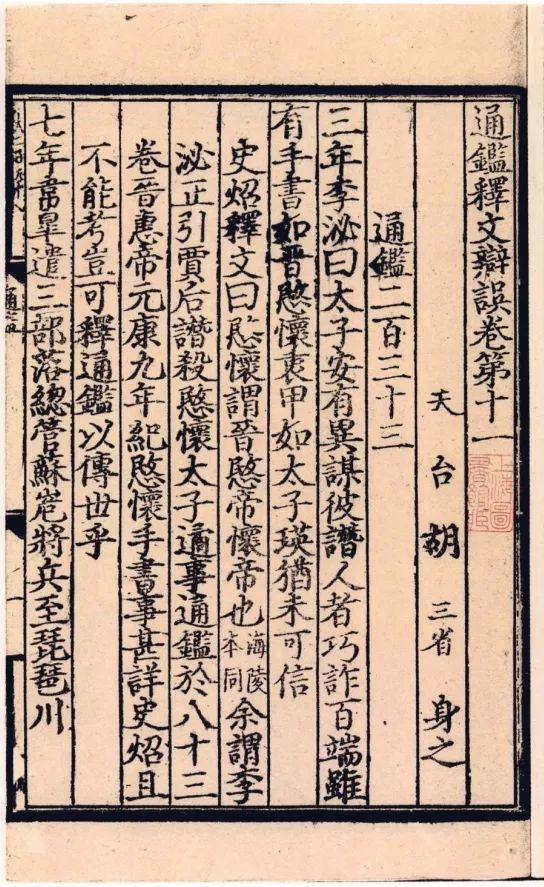 通鑑釋文辯誤卷第十一
天台胡三省身之
通鑑二百三十三
三年李泌曰太子安有異謀彼譖人者巧詐百端雖
有手書如晉愍懷衷甲如太子瑛猶未可信
史炤釋文曰愍懷謂晉愍帝懷帝也海陵本同余謂李
泌正引賈后譖殺愍懷太子適事通鑑於八十三
卷晉惠帝元康九年紀愍懷手書事甚詳史炤且
不能考豈可釋通鑑以傳世乎
七年韋皐遣三部落總管蘇嵬將兵至琵琶川
上海圖書館藏